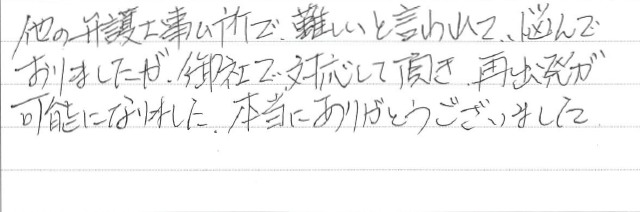 他の弁護士事ム所で、難しいと言われて、悩んで
おりましたが、御社で対応して頂き、再出発が
可能になりました。本当にありがとうございました